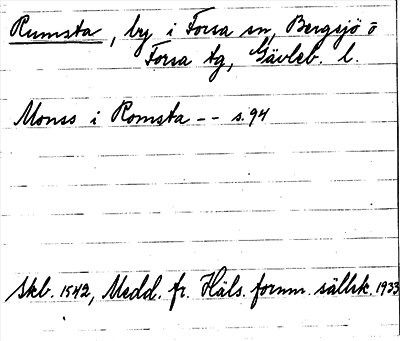 Rumsta, by i Forsa sn, Bergsjö o
Forsa tg, Gävleb. l.
Monss i Romsta -- s. 94
Skb. 1542, Medd. fr. Häls. fornm. sällsk. 1933